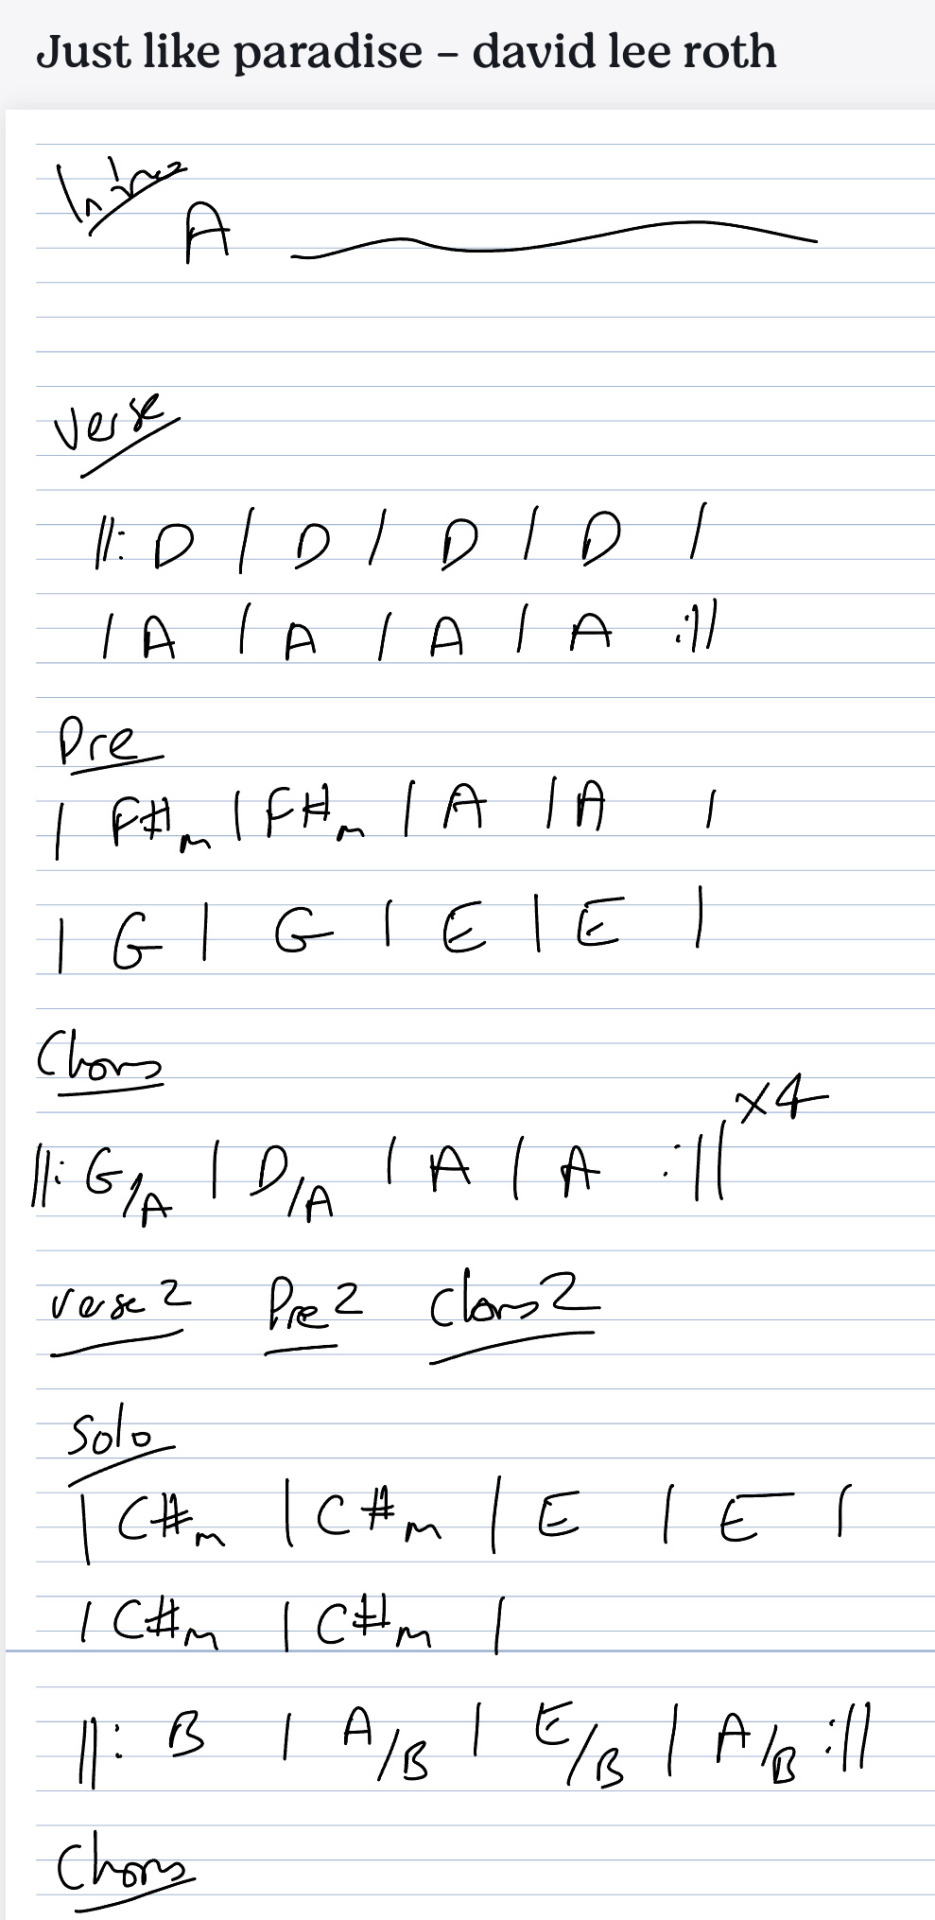 Just like paradise – david lee roth
Intro
A
Verse
||: D | D | D | D |
| A | A | A | A :||
Pre
| F#m | F#m | A | A |
| G | G | E | E |
Chorus
||: G/A | D/A | A | A :|| x4
Verse 2 Pre 2 Chorus 2
Solo
| C#m | C#m | E | E |
| C#m | C#m |
||: B | A/B | E/B | A/B :||
Chorus